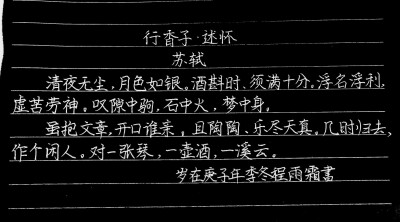 行香子·述怀
苏轼
清夜无尘，月色如银。酒斟时、须满十分。浮名浮利，
虚苦劳神。叹隙中驹，石中火，梦中身。
虽抱文章，开口谁亲。且陶陶、乐尽天真。几时归去，
作个闲人。对一张琴，一壶酒，一溪云。
岁在庚子年季冬程雨霜書